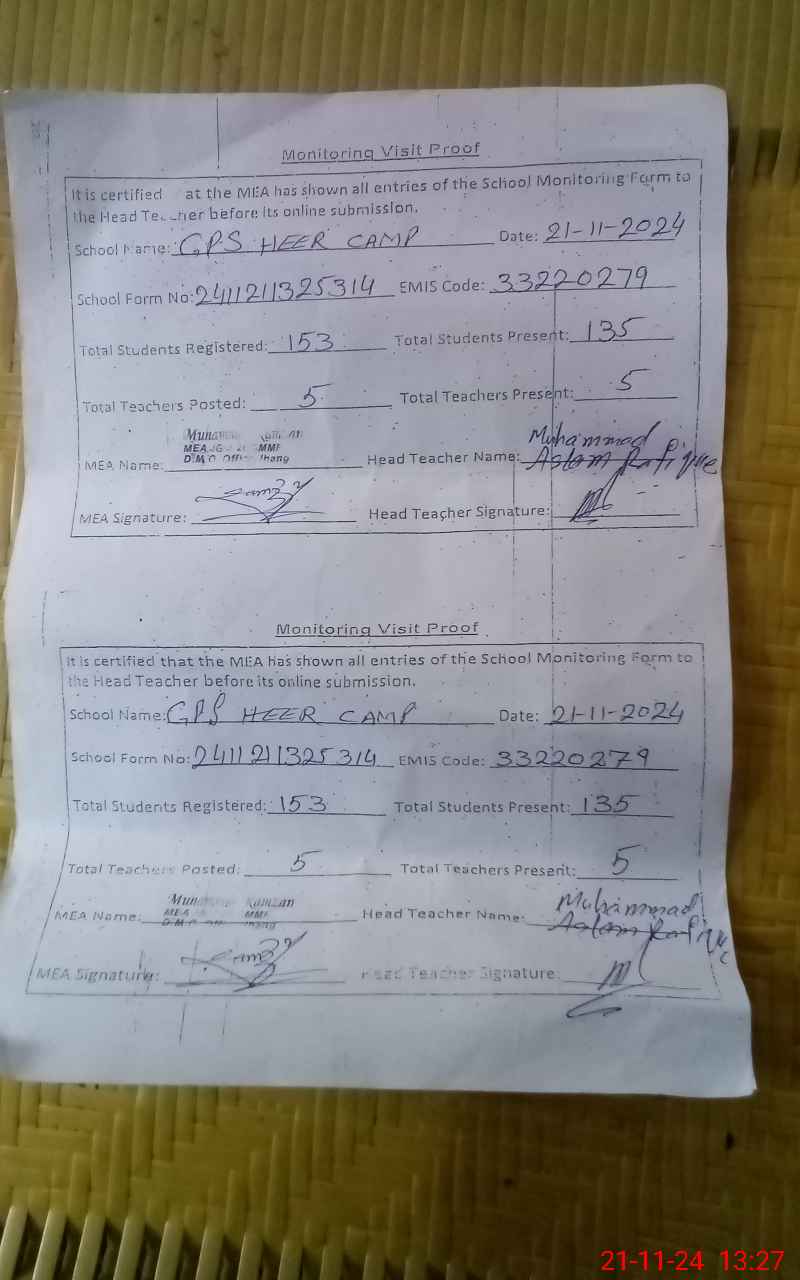 Monitoring Visit Proof
It is certified at the MEA has shown all entries of the School Monitoring Form to
the Head Teacher before its online submission.
School Name: GPS HEER CAMP Date: 21-11-2024
School Form No: 2411211325314 EMIS Code: 33220279
Total Students Registered: 153 Total Students Present: 135
Total Teachers Posted: 5 Total Teachers Present: 5
Muhammad
MEA Name: Head Teacher Name: Aslam Rafique
MEA Signature: Head Teacher Signature:
Monitoring Visit Proof
It is certified that the MEA has shown all entries of the School Monitoring Form to
the Head Teacher before its online submission.
School Name: GPS HEER CAMP Date: 21-11-2024
School Form No: 2411211325314 EMIS Code: 33220279
Total Students Registered: 153 Total Students Present: 135
Total Teachers Posted: 5 Total Teachers Present: 5
Muhammad
MEA Name: Head Teacher Name: Aslam Rafique
MEA Signature: Head Teacher Signature:
21-11-24 13:27